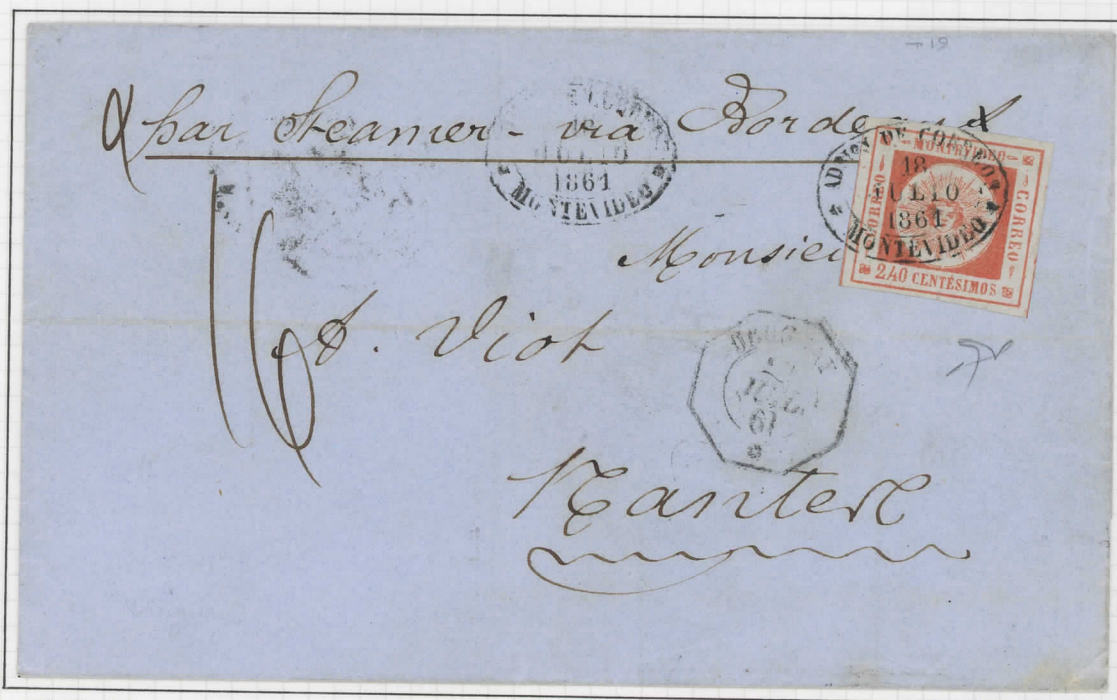 par Steamer - via Bordeaux
1861
MONTEVIDEO
ADMON DE CORREOS
18
JULIO
1861
MONTEVIDEO
MONTEVIDEO
CORREO
CORREO
240 CENTÉSIMOS
Monsieu
A. Viot
16
JUIL
61
Nantes